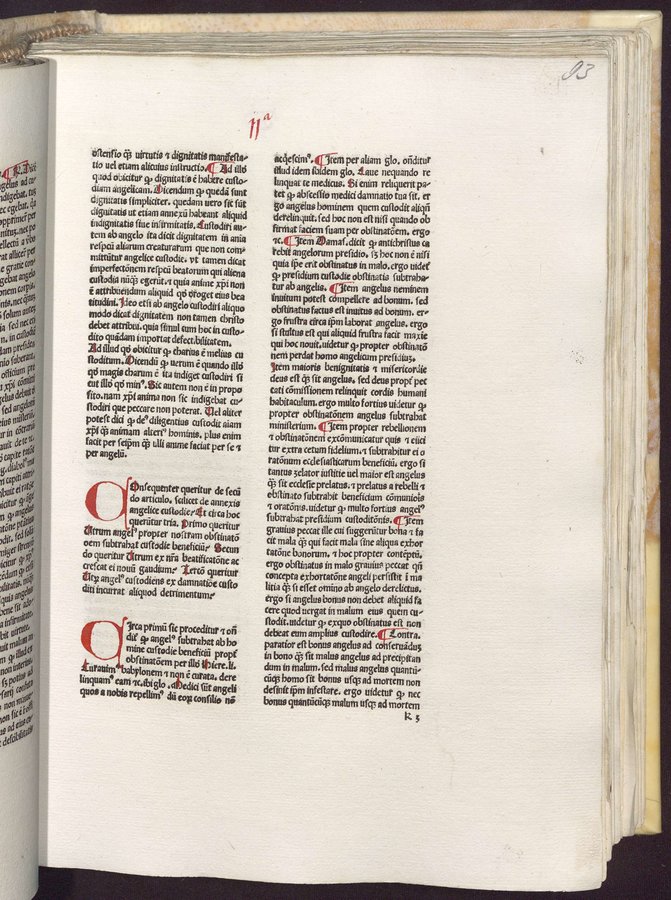 93
IIª
ostensio qȝ uirtutis ⁊ dignitatis manifesta-
tio uel etiam alicuius instructio. ¶ Ad illð
quod obicitur ꝙ dignitatis ē habere custo-
diam angelicam. Dicendum ꝙ quedā sunt
dignitates simpliciter. quedam uero sic sūt
dignitatis ut etiam annexū habeant aliquid
indignitatis siue infirmitatis. Custodiri au-
tem ab angelo ita dicit dignitatem in aīa
respcū aliarum creaturarum que non com-
mittūtur angelice custodie. ut tamen dicat
imperfectōnem respcū beatorum qui aliena
custodia nūqȝ egent. ⁊ quia anime xp̄i non
ē attribuendum aliquid qð ƿroget eius bea
titudini. Ideo etsi ab angelo custodiri aliquo
modo dicat dignitatem non tamen christo
debet attribui. quia simul cum hoc in custo-
dito quādam importat defectibilitatem.
Ad illud qð obicitur ꝙ charius ē melius cu
stoditum. Dicendū ꝙ uerum ē quando illð
qð magis charum ē ita indiget custodiri si
cut illð qð min⁹. Sic autem non ē in propo
sito. nam xp̄i anima non sic indigebat cu-
stodiri que peccare non poterat. Uel aliter
potest dici ꝙ de⁹ diligentius custodit aīam
xp̄i qȝ animam alteri⁹ hominis. plus enim
facit per seip̄m qȝ ulli anime faciat per se ⁊
per angelū.
COnsequenter queritur de secū
do articulo. scilicet de annexis
angelice custodie. Et circa hoc
querūtur tria. Primo queritur
Utrum angel⁹ propter nostram obstinatō
oem subtrahat custodie beneficiū. Secun
do queritur Utrum ex nr̄a beatificatōne ac
crescat ei nouū gaudium. Tertō queritur
Utrū angel⁹ custodiens ex damnatiōe custo
diti incurrat aliquod detrimentum.
CIrca primū sic proceditur ⁊ oñ
dit̄ ꝙ angel⁹ subtrahat ab ho
mine custodie beneficiū propt̄
obstinatōem per illð Hiere. li.
Curauim⁹ babylonem ⁊ non ē curata. dere
linquam⁹ eam ⁊c. ibi glo. Medici sūt angeli
quos a nobis repellim⁹ dū eoꝝ consilio nō
acqescim⁹. ¶ Item per aliam glo. oñditur
illud idem ibidem glo. Caue nequando re
linquat te medicus. Si enim reliquerit pa-
tet ꝙ abscessio medici damnatio tua sit. er
go angelus hominem quem custodit aliqñ
derelinquit. sed hoc non est nisi quando ob
firmat faciem suam per obstinatōem. ergo
⁊c. ¶ Item Damas. dicit ꝙ antichristus ca
rebit angelorum presidio. sȝ hoc non ē nisi
quia sp̄e erit obstinatus in malo. ergo uidet̄
ꝙ presidium custodie obstinatis subtraha-
tur ab angelis. ¶ Item angelus neminem
inuitum potest compellere ad bonum. sed
obstinatus factus est inuitus ad bonum. er-
go frustra circa ip̄m laborat angelus. ergo
si stultus est qui aliquid frustra facit maxīe
qui hoc nouit. uidetur ꝙ propter obstinatō
nem perdat homo angelicum presidium.
Item maioris benignitatis ⁊ misericordie
deus est qȝ sit angelus. sed deus propt̄ pec
cati cōmissionem relinquit cordis humani
habitaculum. ergo multo fortius uidetur ꝙ
propter obstinatōnem angelus subtrahat
ministerium. ¶ Item propter rebellionem
⁊ obstinatōnem excōmunicatur quis ⁊ eiici
tur extra cetum fidelium. ⁊ subtrahitur ei o
ratōnum ecclesiasticarum beneficiū. ergo si
tantus zelator iustitie uel maior est angelus
qȝ sit ecclesie prelatus. ⁊ prelatus a rebelli ⁊
obstinato subtrahit beneficium cōmuniōis
⁊ oratōnis. uidetur ꝙ multo fortius angel⁹
subtrahat presidium custoditōnis. ¶ Item
grauius peccat ille cui suggerūtur bona ⁊ fa
cit mala qȝ qui facit mala sine aliqua exhor
tatōne bonorum. ⁊ hoc propter contēptū.
ergo obstinatus in malo grauius peccat qñ
concepta exhortatōne angeli persistit ī ma
litia qȝ si esset omīno ab angelo derelictus.
ergo si angelus bonus non debet aliquid fa
cere quod uergat in malum eius quem cu-
stodit. uidetur ꝙ exquo obstinatus est non
debeat eum amplius custodire. ¶ Contra.
paratior est bonus angelus ad conseruādum
in bono qȝ sit malus angelus ad precipitan
dum in malum. sed malus angelus quantū
cūqȝ homo sit bonus usqȝ ad mortem non
desinit ip̄m infestare. ergo uidetur ꝙ nec
bonus quantūcūqȝ malum usqȝ ad mortem
k 3